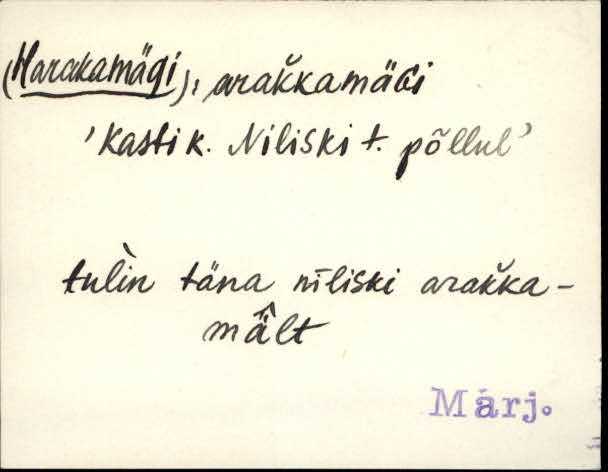 (Harakamägi), araǩkamäGi
'Kasti k. Niliski t. põllul'
tulìn täna nīliski araǩka-
mä̂lt
Märj.